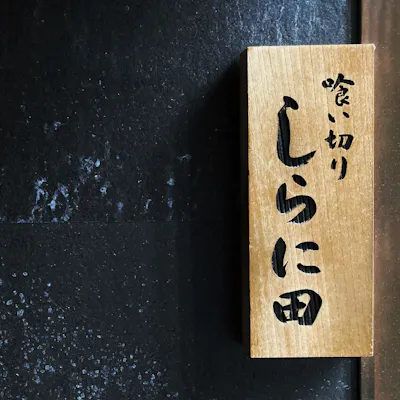 喰い切り
しらに田